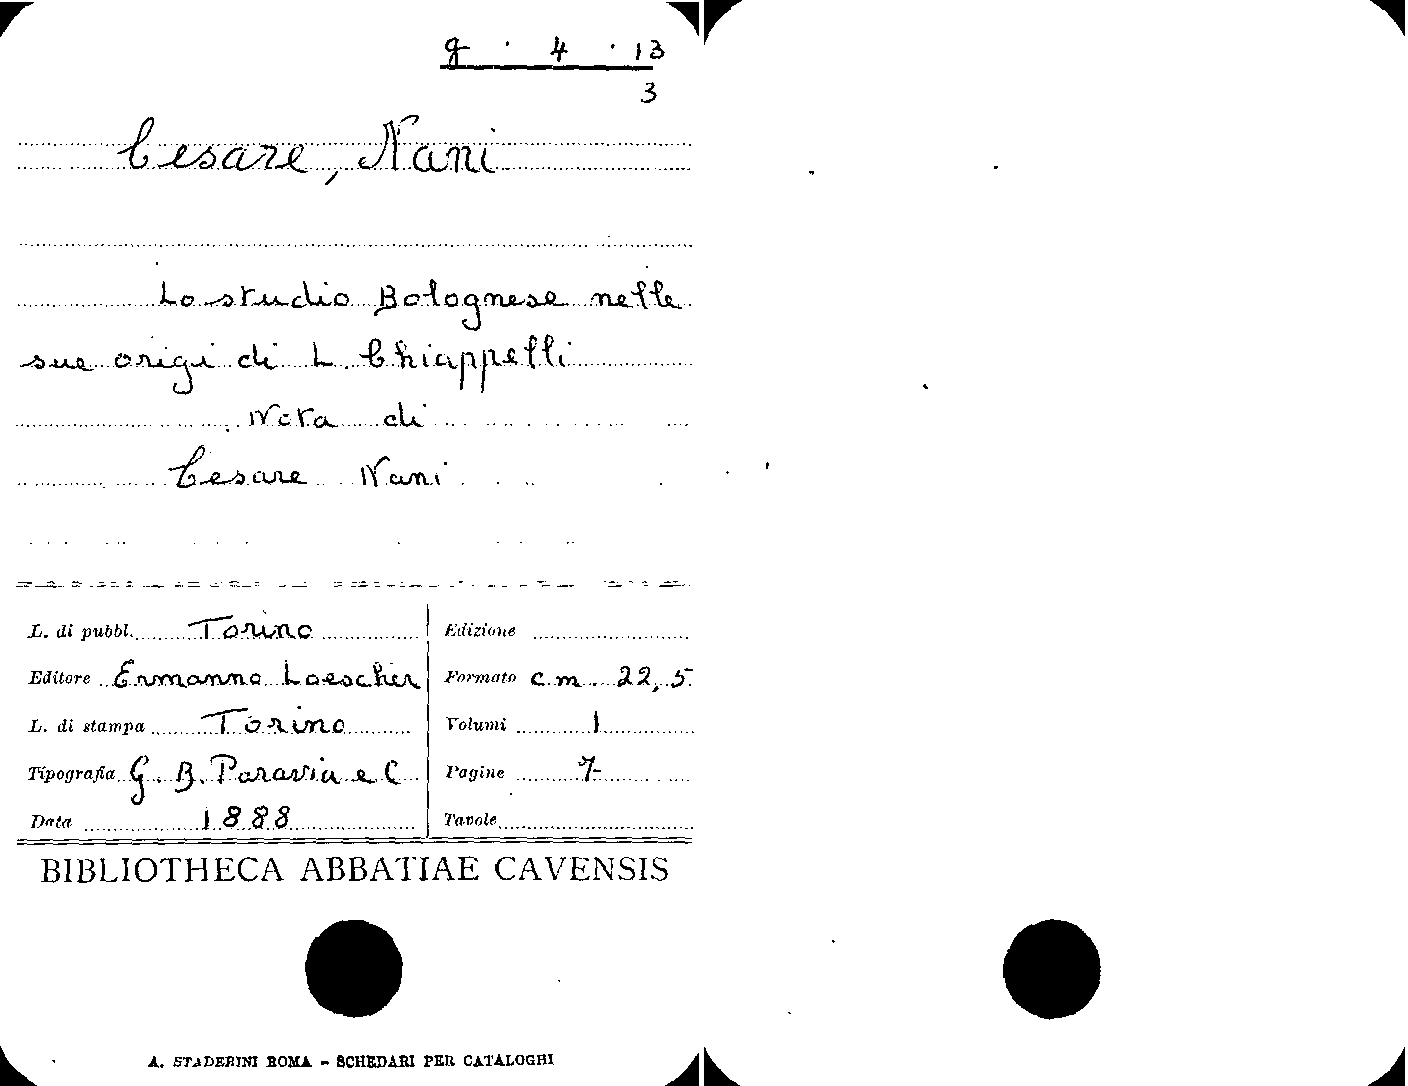 g · 4 · 13
3
Cesare, Nani
Lo studio Bolognese nelle
sue origi di L. Chiappelli
Nota di
Cesare Nani
L. di pubbl. Torino
Editore Ermanno Loescher
L. di stampa Torino
Tipografia G. B. Paravia e C
Data 1888
Edizione
Formato cm. 22,5
Volumi 1
Pagine 7
Tavole
BIBLIOTHECA ABBATIAE CAVENSIS
A. STADERINI ROMA - SCHEDARI PER CATALOGHI